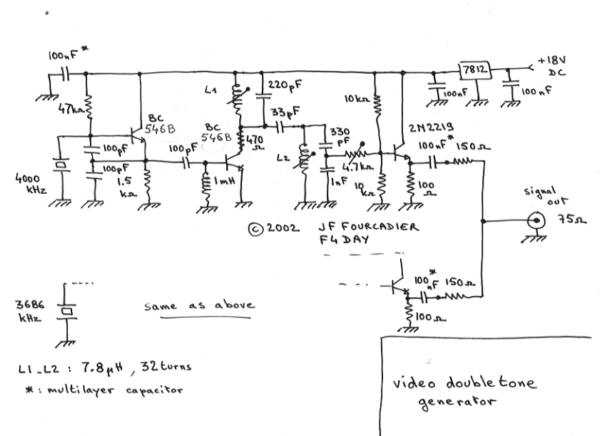 100nF *
47kΩ
4000
kHz
100pF
100pF
BC
546B
1.5
kΩ
100pF
1mH
BC
546B
L1
220pF
470
Ω
33pF
L2
330
pF
1nF
4.7kΩ
10kΩ
10
kΩ
2N2219
100nF*
150Ω
100
Ω
100nF
7812
+18V
DC
100nF
signal
out
75Ω
© 2002 JF FOURCADIER
F4DAY
3686
kHz
same as above
100*
nF
150Ω
100Ω
L1_L2 : 7.8µH , 32 turns
* : multilayer capacitor
video double tone
generator